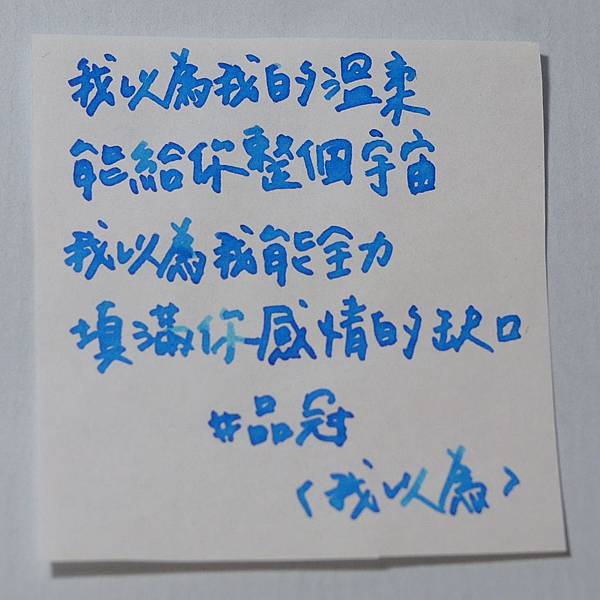 我以為我的溫柔
能給你整個宇宙
我以為我能全力
填滿你感情的缺口
#品冠
〈我以為〉